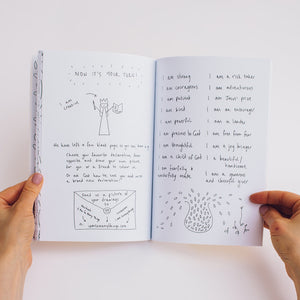 NOW IT'S YOUR TURN!
I am creative
We have left a few blank pages so you can
Choose your favourite declaration from opposite and draw your own picture for you or a friend to colour in.
Or ask God how he sees you and write a brand new declaration!
Send us a picture of your drawings to
I am strong
I am courageous
I am patient
I am kind
I am peaceful
I am precious to God
I am thoughtful
I am a child of God
I am fearfully & wonderfully made
I am a risk taker
I am adventurous
I am Jesus' prize
I am an encourager
I am in handy
I am free from fear
I am a joy bringer
I am beautiful / handsome
I am a generous and cheerful giver